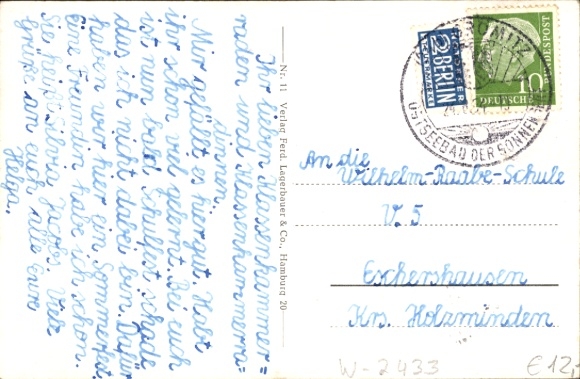 Ihr lieben Klassenkammer=
raden und Klassenkammera=
dinnen.
Mir gefällt es hier gut. Habt
ihr schon viel gelernt. Bei euch
ist nun bald Schulfest schade
das ich nicht dabei bin. Dafür
haben wir hier ein Sommerfest.
Eine Freundin habe ich schon.
Sie heißt Silvia Jacobs. Viele
Grüße an euch alle Eure
Helga.
Nr. 11 Verlag Ferd. Lagerbauer & Co., Hamburg 20
NOTOPFER
2 BERLIN
STEUERMARKE
DEUTSCHE BUNDESPOST
10
GRÖMITZ
OSTSEEBAD DER SONNENSEITE
An die
Wilhelm-Raabe-Schule
V. 5
Eschershausen
Krs. Holzminden
W-2433
€12,-